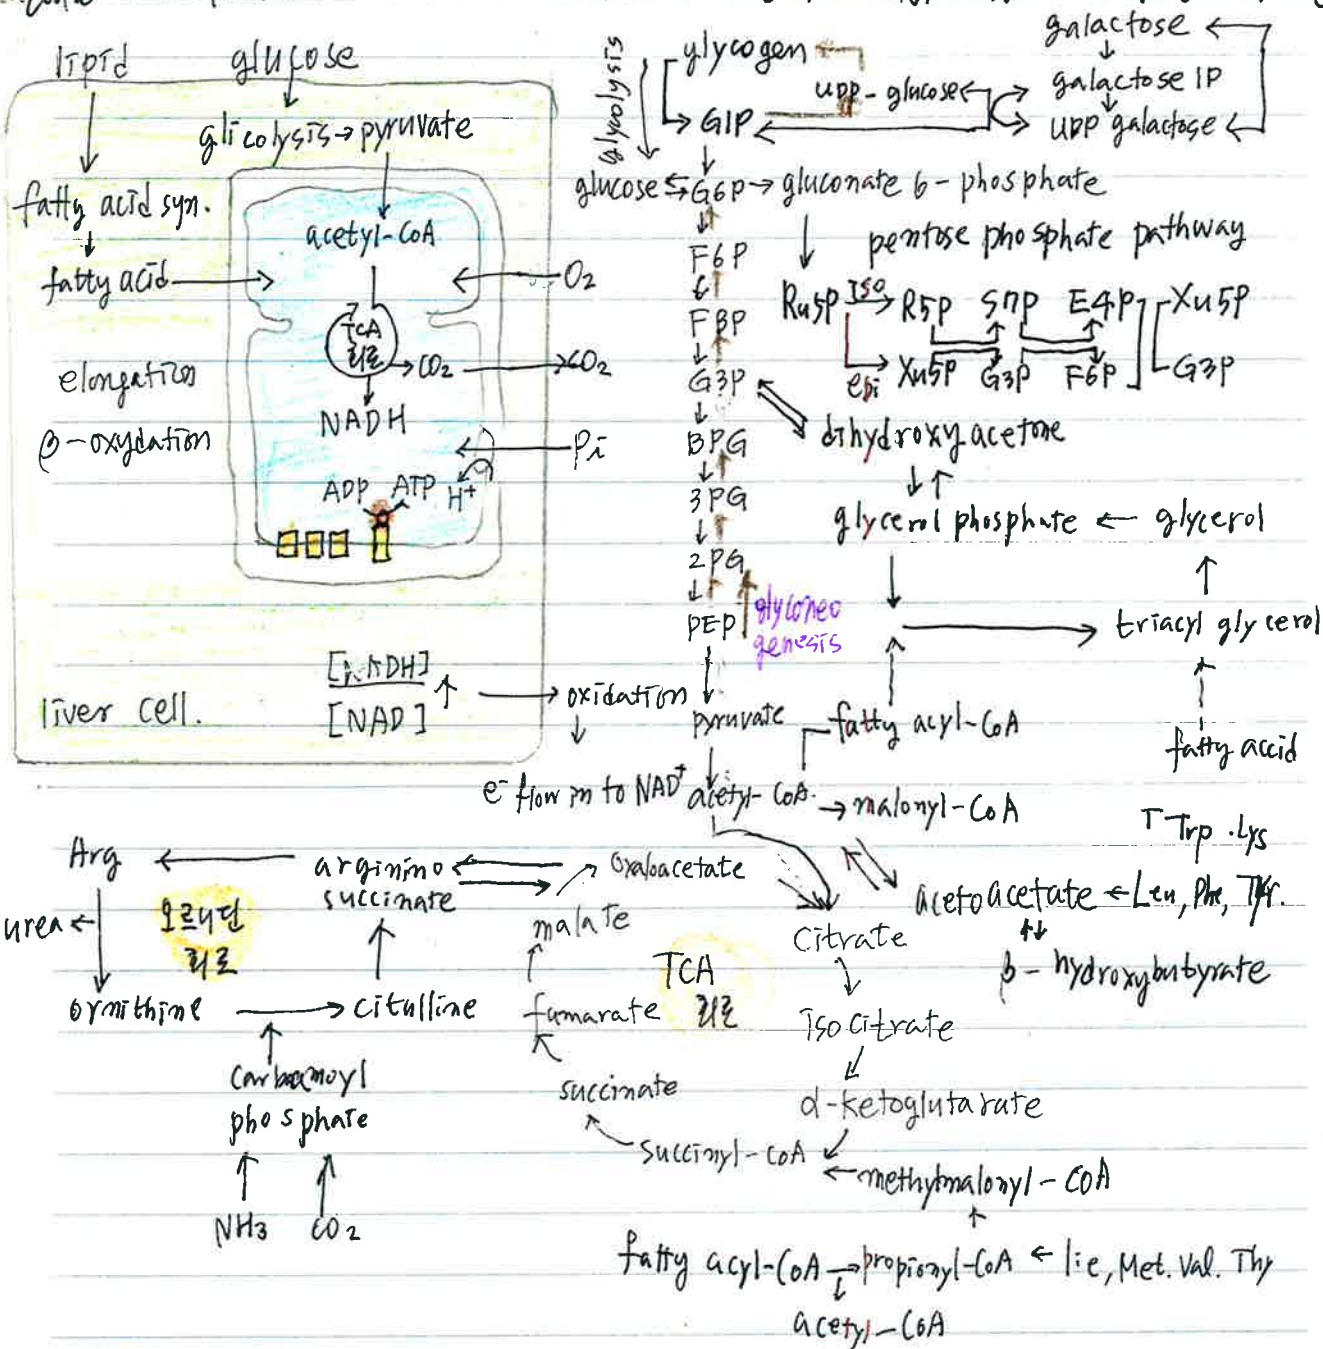 lipid
glucose
glicolysis → pyruvate
fatty acid syn.
fatty acid
elongation
β-oxydation
acetyl-CoA
O2
TCA
회로
CO2
CO2
NADH
Pi
ADP ATP H+
[NADH]
[NAD]
liver cell.
oxidation
e⁻ flow in to NAD⁺
glycolysis
glycogen
UDP-glucose
G1P
galactose
galactose 1P
UDP galactose
glucose ⇆ G6P → gluconate 6-phosphate
pentose phosphate pathway
F6P
FBP
G3P
BPG
3PG
2PG
PEP
glyconeo
genesis
pyruvate
acetyl-CoA.
Ru5P ISO R5P S7P E4P Xu5P
epi Xu5P G3P F6P G3P
dihydroxy acetone
glycerol phosphate ← glycerol
triacyl glycerol
fatty accid
fatty acyl-CoA
→ malonyl-CoA
Trp .Lys
acetoacetate ← Leu, Phe, Tyr.
β-hydroxybutyrate
Arg
arginino
succinate
urea
오르니틴
회로
ornithine
citulline
carbamoyl
phosphate
NH3 CO2
oxaloacetate
malate
fumarate
succinate
succinyl-CoA
TCA
회로
citrate
isocitrate
α-ketoglutarate
methylmalonyl-COA
fatty acyl-CoA → propionyl-CoA ← lie, Met. Val. Thy
acetyl-CoA